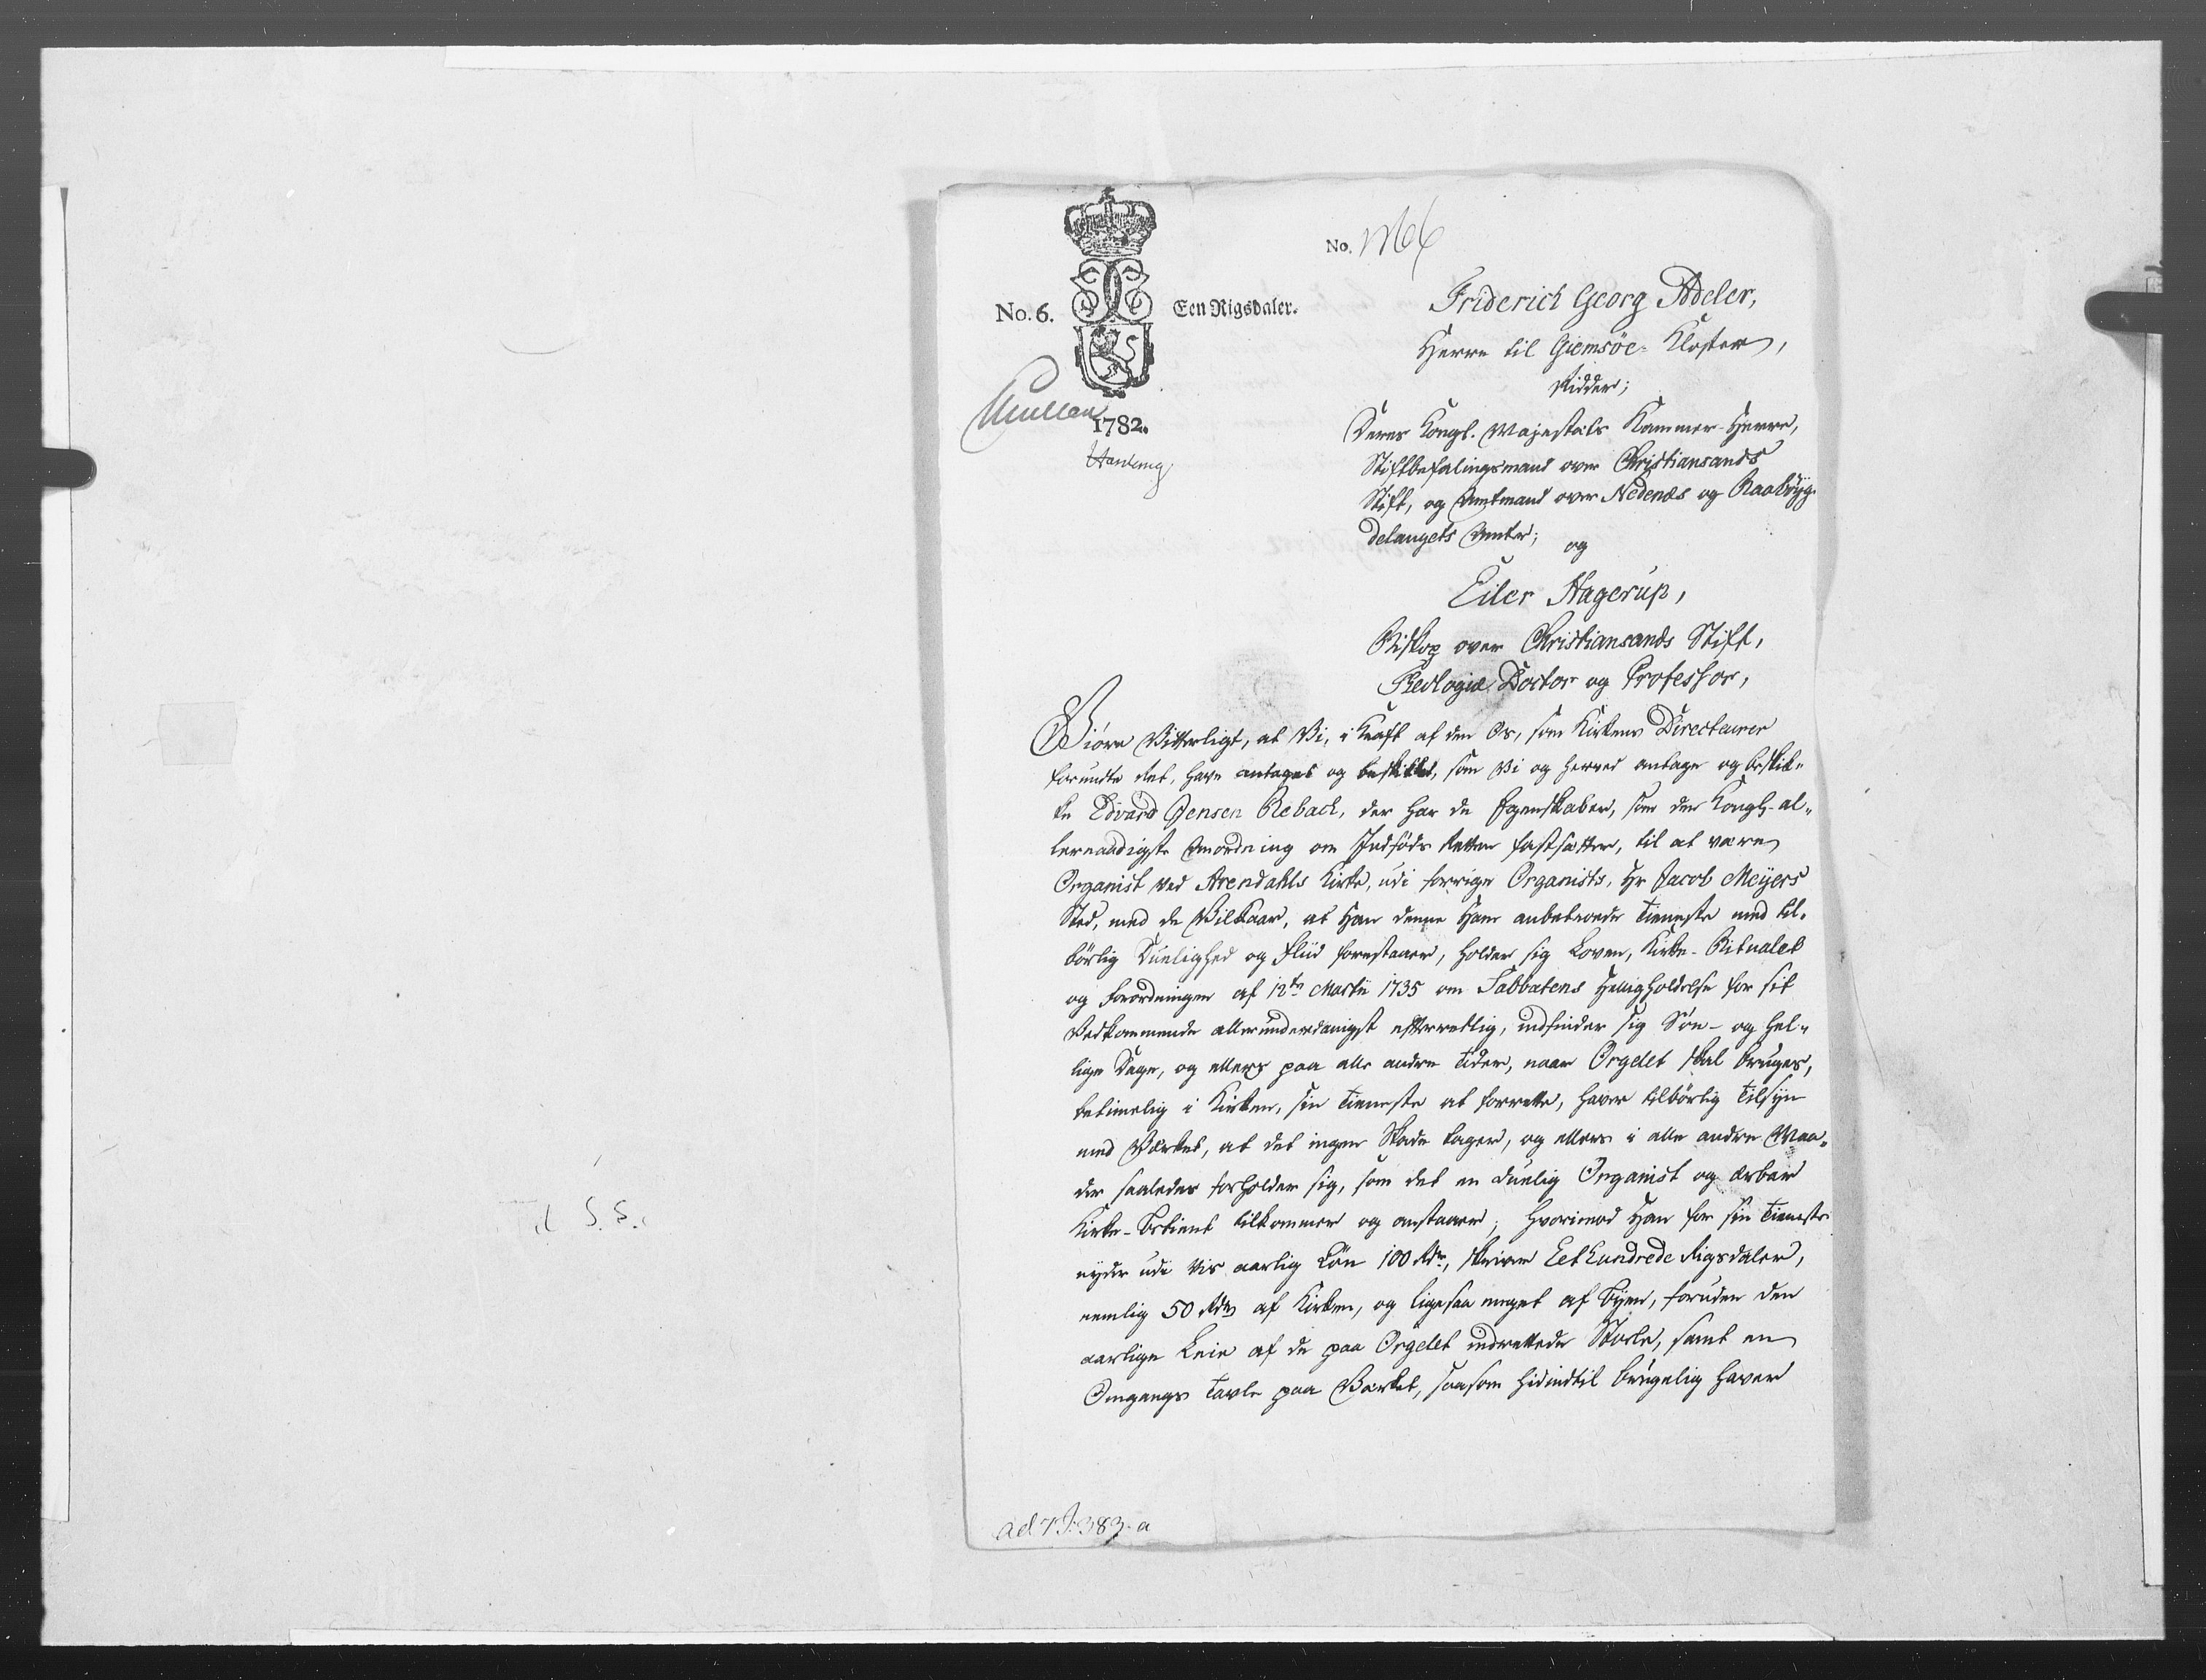 No.
No. 6. Een Rigsdaler.
1782.
Friderich Georg Adeler,
Herre til Giemsöe-Kloster,
Ridder;
Deres Kongl. Majestæts Kammer-Herre,
Stiftbefalingsmand over Christiansands
Stift, og Amtmand over Nedenæs og Raabÿg-
delaugets Amter;
og
Eiler Hagerup,
Biskop over Christiansands Stift,
Theologiæ Doctor og Professor,
Giöre Vitterligt, at Vi, i Kraft af den Os, som Kirkens Directeurer
forundte Ret, have antaget og beskikket, som Vi og herved antage og beskik-
ke Edvard Jensen Reback, der har de Egenskaber, som den Kongl. al-
lernaadigste Anordning om Indföds Retten fastsætter, til at være
Organist ved Arendahls Kirke, udi forrige Organists, Hr Jacob Meÿers
Sted, med de Vilkaar, at Han denne Ham anbetroede Tieneste med til-
börlig Duelighed og Fliid forestaaer, holder sig Loven, Kirke-Ritualet
og Forordningen af 12te Martii 1735 om Sabbatens Helligholdelse for sit
Vedkommende allerunderdanigst efterretlig, indfinder sig Sön- og hel-
lige Dage, og ellers paa alle andre Tider, naar Orgelet skal bruges,
betimelig i Kirken, sin Tieneste at forrette, haver tilbörlig Tilsÿn
med Værket, at det ingen Skade tager, og ellers i alle andre Maa-
der saaledes forholder sig, som det en duelig Organist og ærbar
Kirke-Betient tilkommer og anstaaer; hvorimod Han for sin Tieneste
nÿder udi Vis aarlig Lön 100 Rdr, skriver Eet Hundrede Rigsdaler,
nemlig 50 Rdr af Kirken, og ligesaa meget af Bÿen, foruden den
aarlige Leie af de paa Orgelet indrettede Stole, samt en
Omgangs Tavle paa Værket, saasom hidindtil brugelig haver
ad 7 J: 383. a